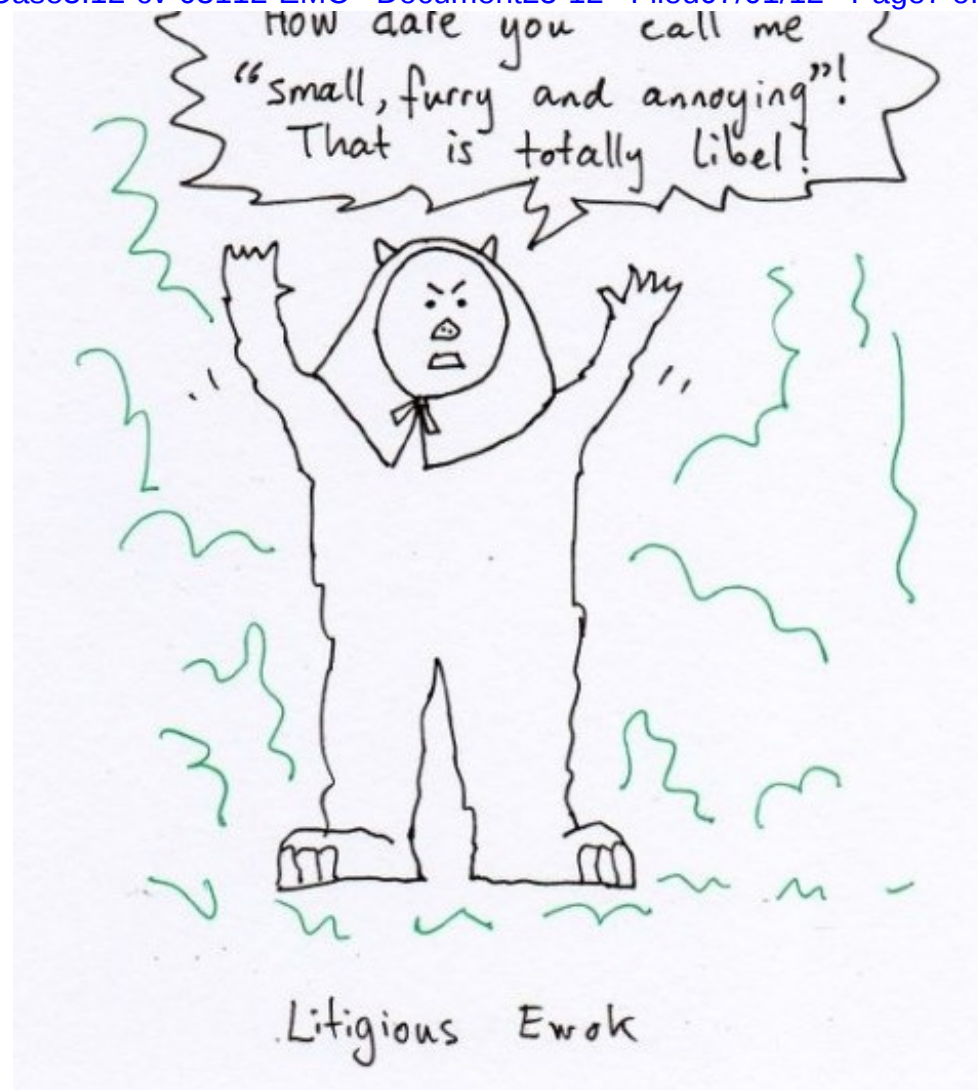 How dare you call me
“small, furry and annoying”!
That is totally libel!
Litigious Ewok